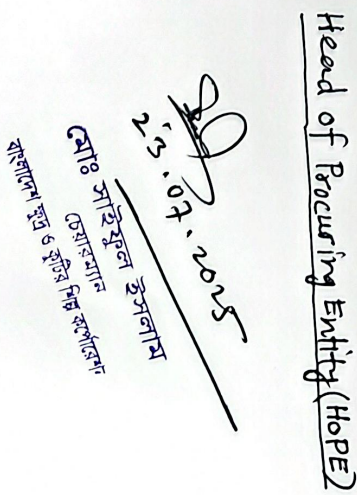 Head of Procuring Entity (HOPE)
23.07.2025
মোঃ সাইফুল ইসলাম
চেয়ারম্যান
বাংলাদেশ ক্ষুদ্র ও কুটির শিল্প কর্পোরেশন